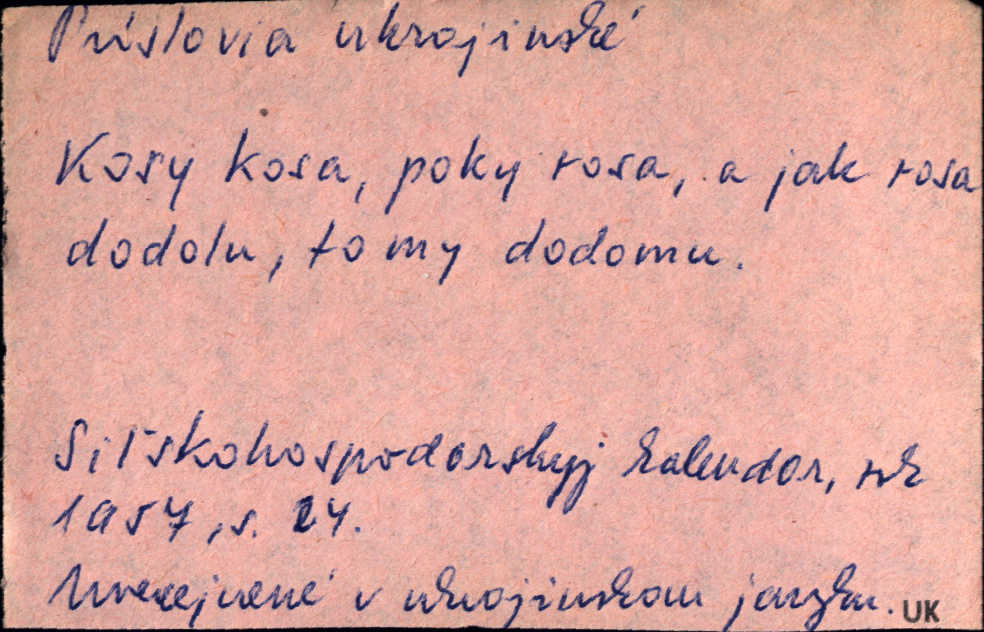 Príslovia ukrajinské
Kosy kosa, poky rosa, a jak rosa
dodolu, to my dodomu.
Siľskohospodarskyj kalendar, rik
1957, s. 24.
Uverejnené v ukrajinskom jazyku. UK